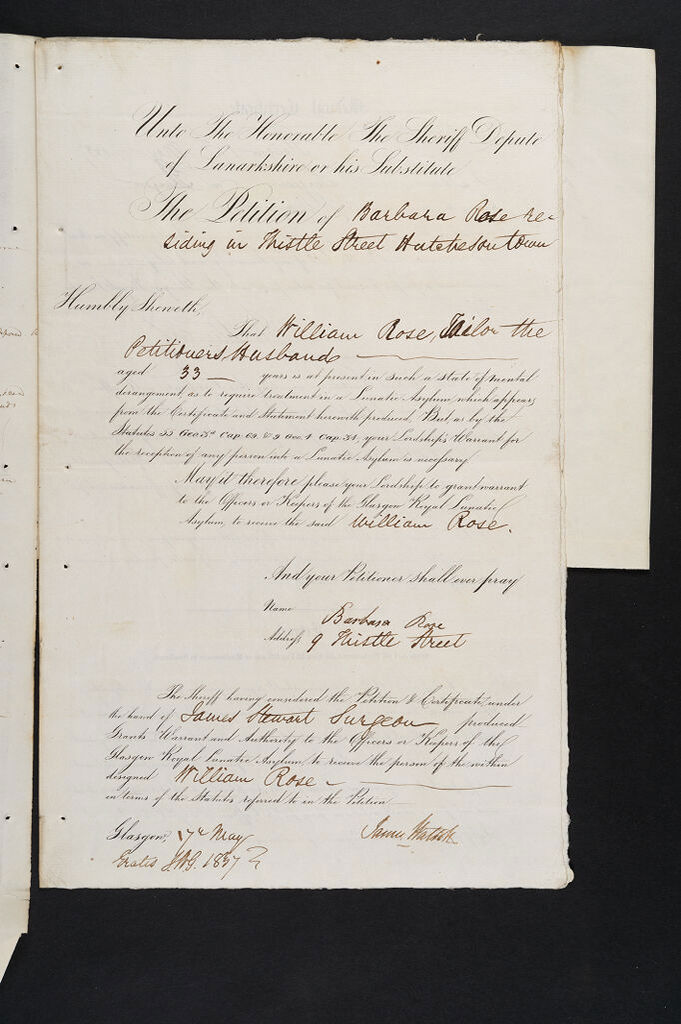 Unto The Honorable The Sheriff Depute
of Lanarkshire or his Substitute
The Petition of Barbara Rose re-
siding in Thistle Street Hutchesontown
Humbly Sheweth,
That William Rose, Tailor the
Petitioners Husband
aged 33 years is at present in such a state of mental
derangement, as to require treatment in a Lunatic Asylum which appears
from the Certificate and Statement herewith produced But, as by the
Statutes 55 Geo 3d Cap 69 & 9 Geo 4 Cap 34, your Lordship's Warrant for
the reception of any person into a Lunatic Asylum is necessary
May it therefore please your Lordship to grant warrant
to the Officers or Keepers of the Glasgow Royal Lunatic
Asylum, to receive the said William Rose.
And your Petitioner shall ever pray
Name Barbara Rose
Address 9 Thistle Street
The Sheriff having considered the Petition & Certificate, under
the hand of James Stewart Surgeon produced
Grants Warrant and Authority to the Officers or Keepers of the
Glasgow Royal Lunatic Asylum to receive the person of the within
designed William Rose
in terms of the Statutes referred to in the Petition
Glasgow, 17th May
Gratis 1837
James